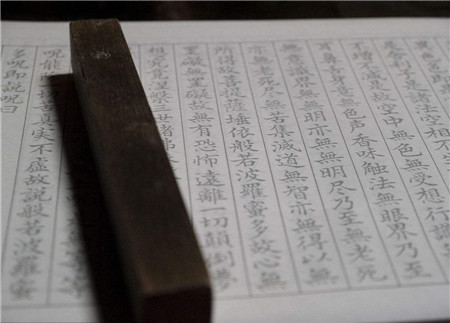 異
是舎利子是諸法空相不
不増不減是故空中無色無受想行識
耳鼻舌身意無色声香味触法無眼界乃至
無意識界無無明亦無無明尽乃至無老死
亦無老死尽無苦集滅道無智亦無得以無
所得故菩提薩埵依般若波羅蜜多故心無
罣礙無罣礙故無有恐怖遠離一切顛倒夢
想究竟涅槃三世諸仏
呪能苦真実不虚故説般若波羅蜜
多呪即説呪曰